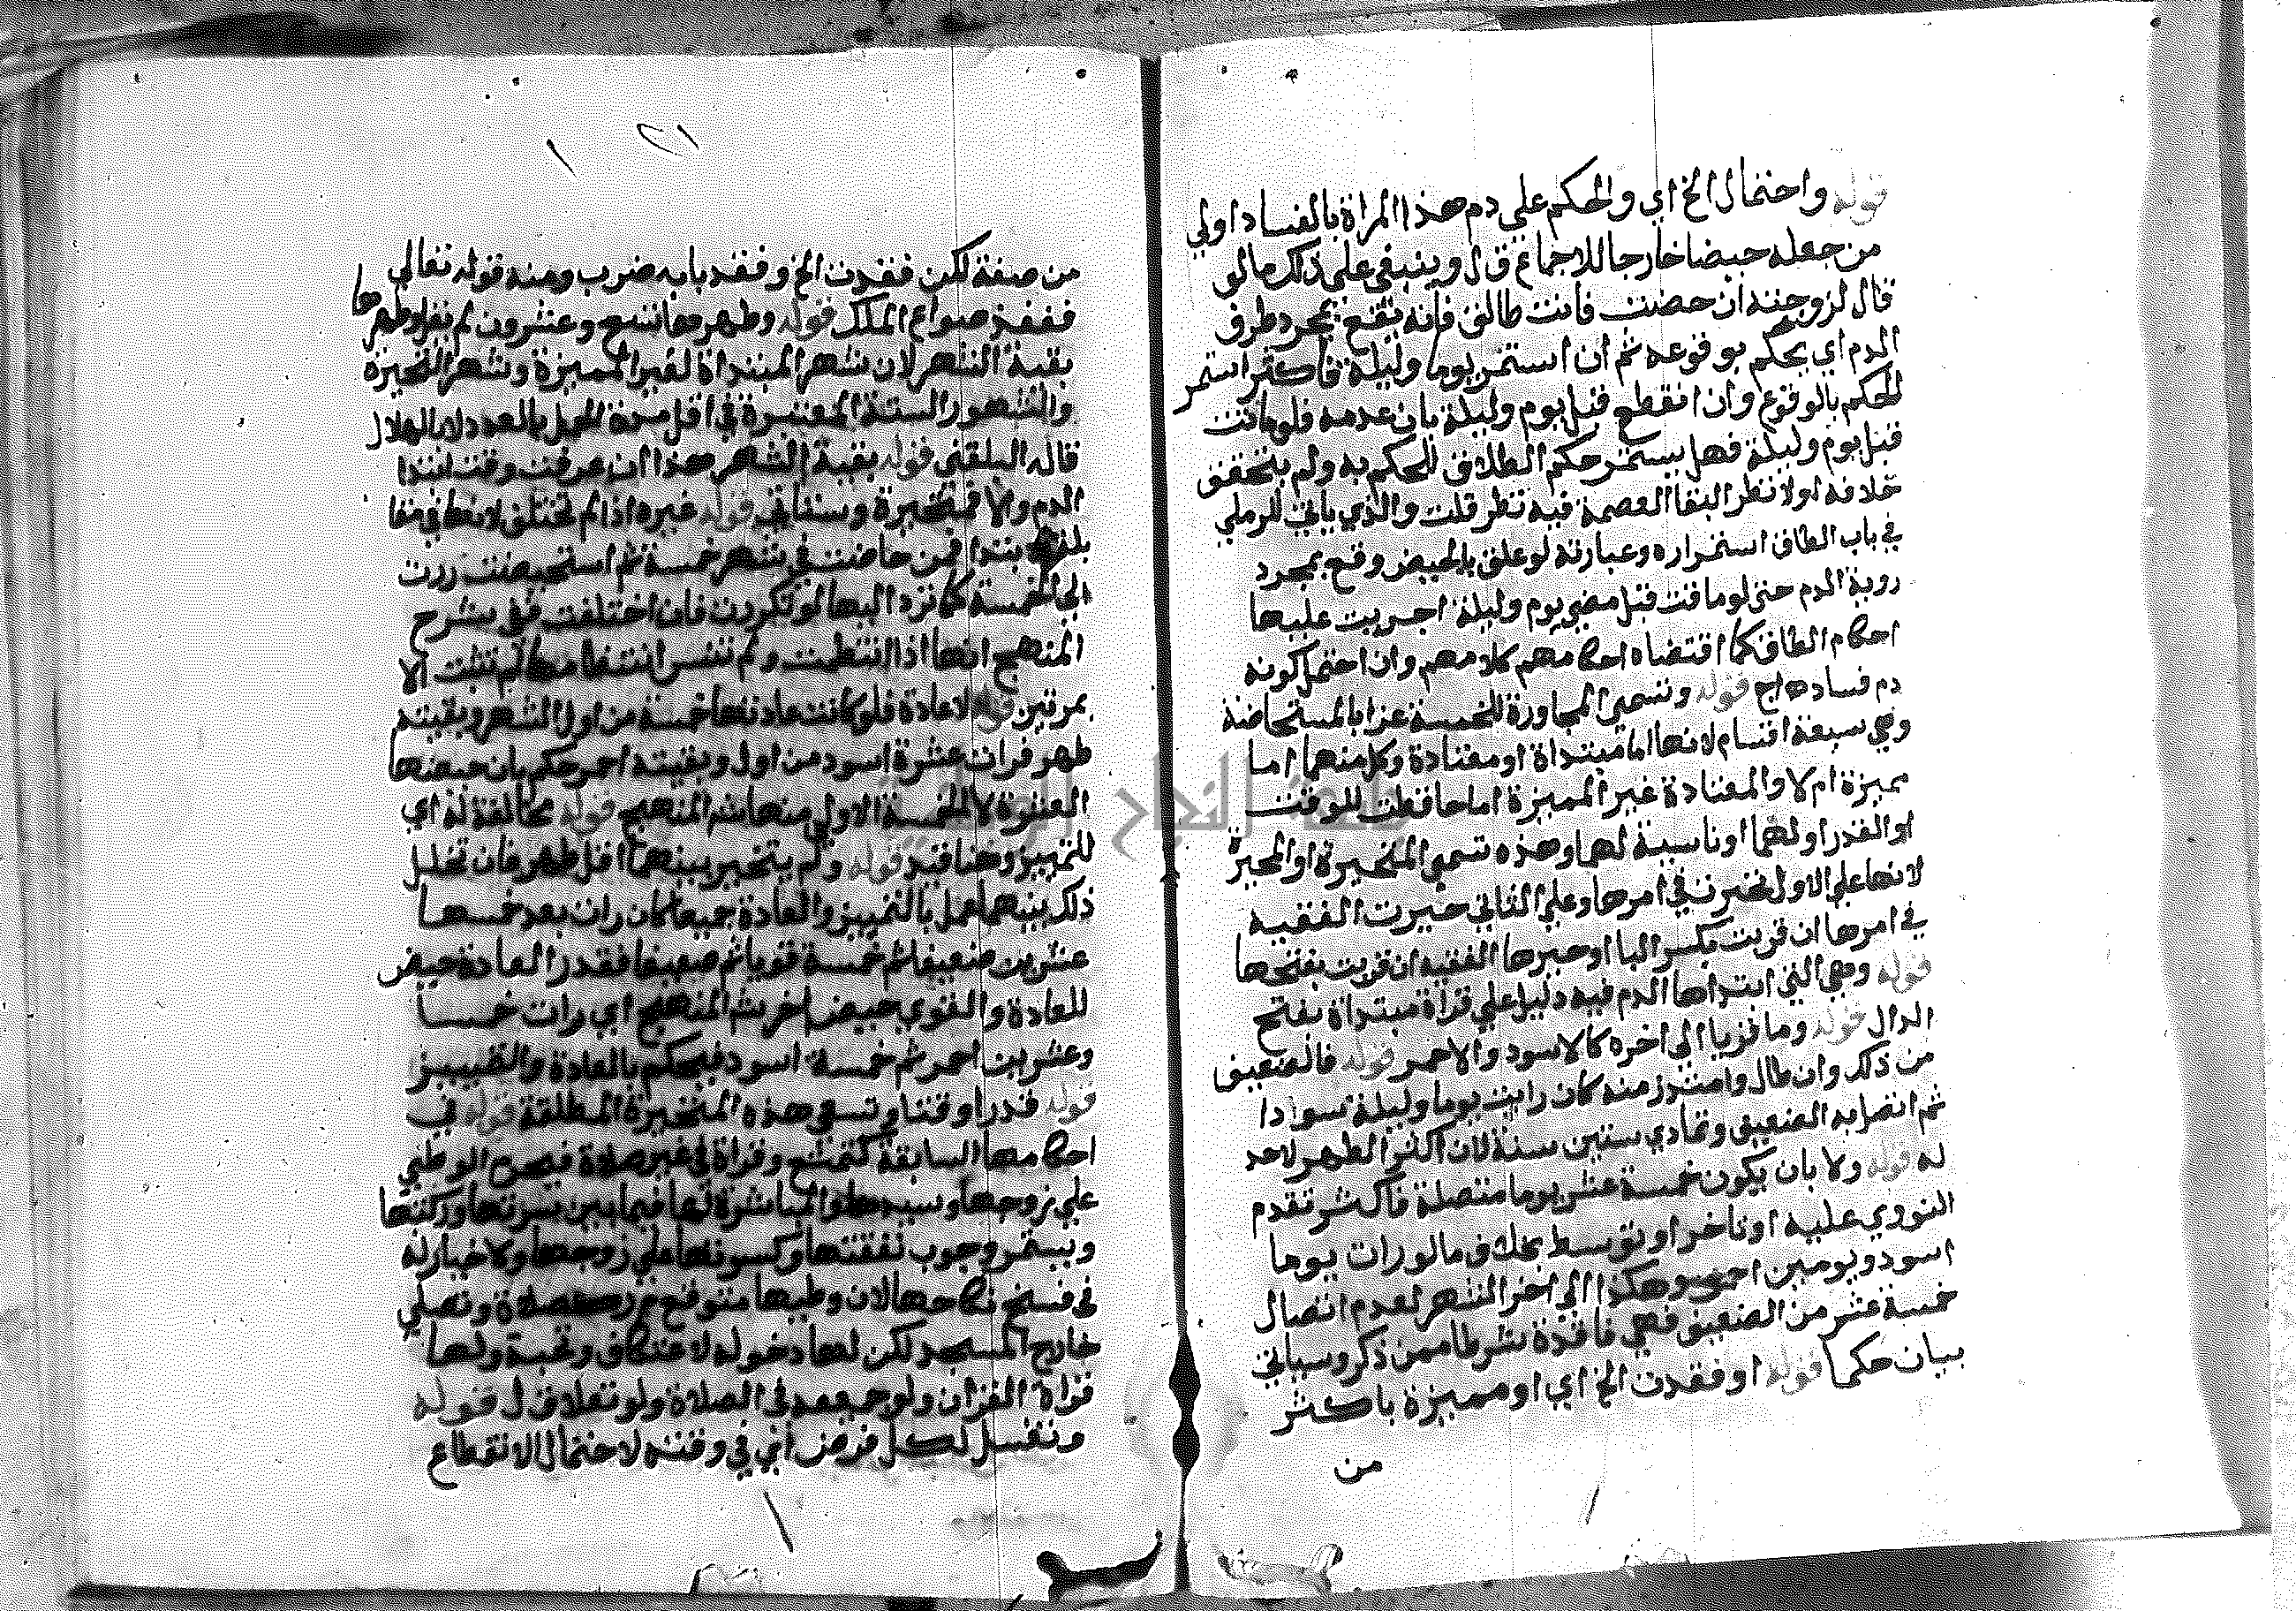 قوله واحتمال الخ اي والحكم علي دم هذا المراة بالفساد اولي
من جعله حيضا خارجا للاجماع ق ل وينبغي علي ذلك ما لو
قال لزوجته ان حضت فانت طالق فانه تقع بمجرد طرق
الدم اي يحكم بوقوعه ثم ان استمر يوما وليلة فاكثر استمر
الحكم بالوقوع وان انقطع قبل يوم وليلة بان عدمه فلو ماتت
قبل يوم وليلة فهل يستمر حكم الطلاق للحكم به ولم يتحقق
خلافه اولا نظر البقا العصمة فيه نظر قلت والذي ياتي للرملي
في باب الطلاق استمراره وعبارته لو علق بالحيض وقع بمجرد
روية الدم حتى لو ماتت قبل مضي يوم وليلة اجريت عليها
احكام الطلاق كما اقتضاه احكامهم كلامهم وان احتمل كونه
دم فساد اه اج قوله وتسمى المجاورة للخمسة عشر بالمستحاضة
وهي سبعة اقسام لانها اما مبتداة او معتادة وكل منهما اما
مميزة ام لا والمعتادة غير المميزة اما حافظت للوقت
او القدر او لهما او ناسية لهما وهذه تسمى المتحيرة او المحيرة
لانها علي الاول تحيرت في امرها وعلي الثاني حيرت الفقيه
في امرها ان قريت بكسر اليا او حيرها الفقيه ان قريت بفتحها
قوله وهي التي ابتداها الدم فيه دليل علي قراة مبتداة بفتح
الدال قوله وما قويا الى اخره كالاسود والاحمر قوله فالضعيف
من ذلك وان طال وامتدز منه كان رايت يوما وليلة سوادا
ثم اتصل به الضعيف وتمادي سنتين سنة لان اكثر الطهر لاحد
له قوله ولا بان يكون خمسة عشر يوما متصلة فاكثر تقدم
النووي عليه او تاخر او توسط بخلاف ما لو رات يوما
اسود ويومين احمر وهكذا الى اخر الشهر لعدم اتصال
خمسة عشر من الضعيف فهي فاقدة شرطا ممن ذكر وسياتي
بيان حكمها قوله او فقدت الخ اي او مميزة باكثر
من
١٢١
من صفة لكن فقدت الخ وفقد بابه ضرب ومنه قوله تعالى
نفقد صواع الملك قوله وطهرها تسع وعشرون لم يقل وطهرها
بقية الشهر لان شهر المبتداة لغير المميزة وشهر المتحيرة
والشهور الستة المعتبرة في اقل مدة الحمل بالعدد لا بالهلال
قاله البلقني قوله بقية الشهر هذا ان عرفت وقت ابتدا
الدم والا فمتحيرة وستاتي قوله غيره اذا لم تختلف لانها في مقا
بلته ابتدا فمن حاضت في شهر خمسة ثم استحيضت ردت
الى الخمسة كما ترد اليها لو تكررت فان اختلفت ففي شرح
المنهج انها اذا انتظمت ولم تنس انتظامها لم تثبت الا
بمرتين قوله لا عادة فلو كانت عادتها خمسة من اول الشهر وبقيته
طهر فرات عشرة اسود من اول وبقيته احمر حكم بان حيضها
العشرة لا الخمسة الاولى منها شه المنهج قوله مخالفة له اي
للتمييز وهنا قيد قوله ولم يتخير بينهما اقل طهر فان تخلل
ذلك بينهما عمل بالتمييز والعادة جميعا كان رات بعد خمسها
عشرين ضعيفا ثم خمسة قويا ثم ضعيفا فقدر العادة حيض
للعادة والقوي حيض اخر شه المنهج اي رات خمسا
وعشرين احمر ثم خمسة اسود فيحكم بالعادة والتمييز
قوله قدرا وقتا وتسمى هذه المتحيرة المطلقة قوله في
احكامها السابقة كتمتع وقراة في غير صلاة فيحرم الوطي
علي زوجها وسيدها والمباشرة لها فيما بين سرتها وركبتها
ويستمر وجوب نفقتها وكسوتها علي زوجها ولا خيار له
في فسخ نكاحها لان وطيها متوقع صلاة وتصلي
خارج المسجد لكن لها دخوله لاعتكاف وتحية ولها
قراة القران ولو جميعه في الصلاة ولو تعلاق ل قوله
وتغسل لكل فرض اي في وقته لاحتمال الانقطاع